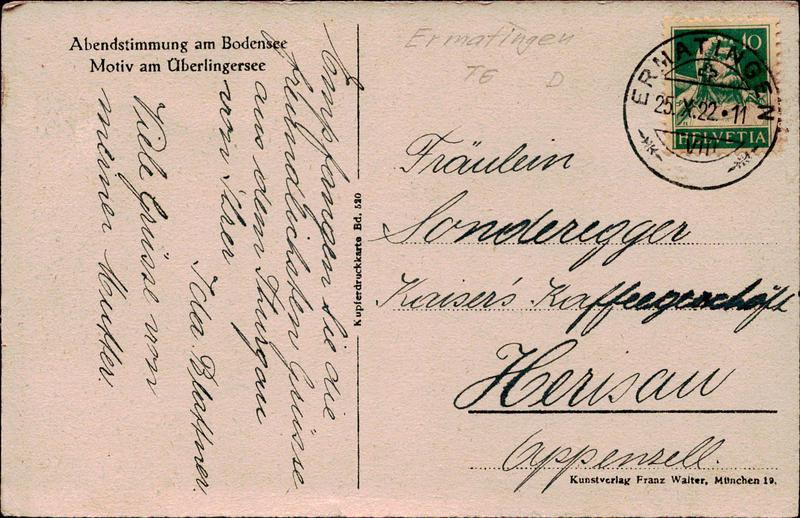 Abendstimmung am Bodensee
Motiv am Überlingersee
Empfangen Sie die
freundlichsten Grüsse
aus dem Thurgau
von Ihrer
Ida Blattner.
Viele Grüsse von
meiner Mutter.
Kupferdruckkarte Bd. 520
Ermatingen
TG D
10
HELVETIA
ERMATINGEN
25.X.22.11
VIII
Fräulein
Sonderegger
Kaiser's Kaffeegeschäft
Herisau
Appenzell.
Kunstverlag Franz Walter, München 19.